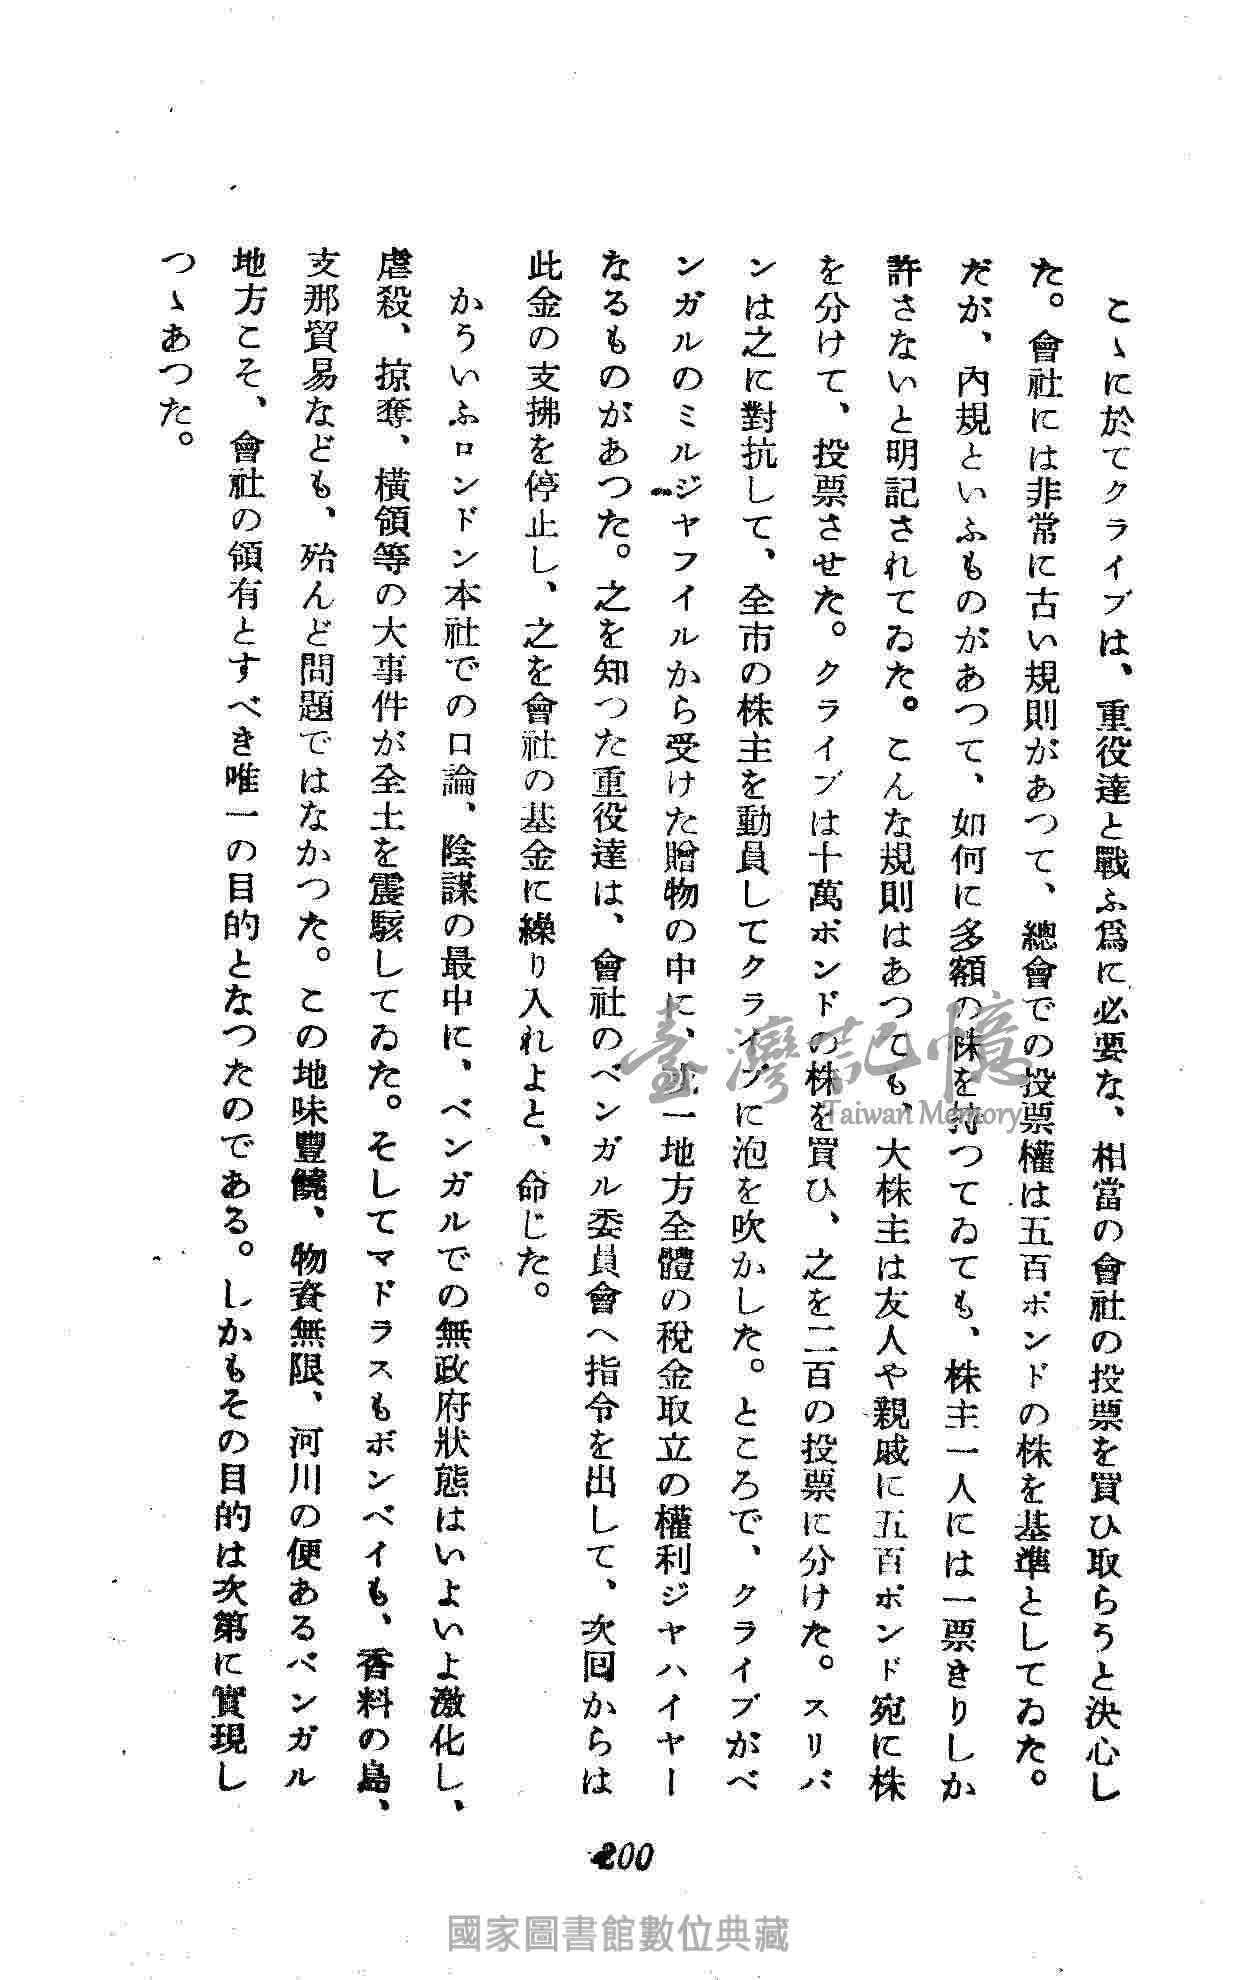 こゝに於てクライブは、重役達と戰ふ爲に必要な、相當の會社の投票を買ひ取らうと決心し
た。會社には非常に古い規則があつて、總會での投票權は五百ポンドの株を基準としてゐた。
だが、內規といふものがあつて、如何に多額の株を持つてゐても、株主一人には一票きりしか
許さないと明記されてゐた。こんな規則はあつても、大株主は友人や親戚に五百ポンド宛に株
を分けて、投票させた。クライブは十萬ポンドの株を買ひ、之を二百の投票に分けた。スリバ
ンは之に對抗して、全市の株主を動員してクライブに泡を吹かした。ところで、クライブがベ
ンガルのミルジヤフイルから受けた贈物の中に、一地方全體の稅金取立の權利ジヤハイヤー
なるものがあつた。之を知つた重役達は、會社のベンガル委員會へ指令を出して、次回からは
此金の支拂を停止し、之を會社の基金に繰り入れよと、命じた。
かういふロンドン本社での口論、陰謀の最中に、ベンガルでの無政府狀態はいよいよ激化し、
虐殺、掠奪、橫領等の大事件が全土を震駭してゐた。そしてマドラスもボンベイも、香料の島、
支那貿易なども、殆んど問題ではなかつた。この地味豐饒、物資無限、河川の便あるベンガル
地方こそ、會社の領有とすべき唯一の目的となつたのである。しかもその目的は次第に實現し
つゝあつた。
200
臺灣記憶
Taiwan Memory
國家圖書館數位典藏